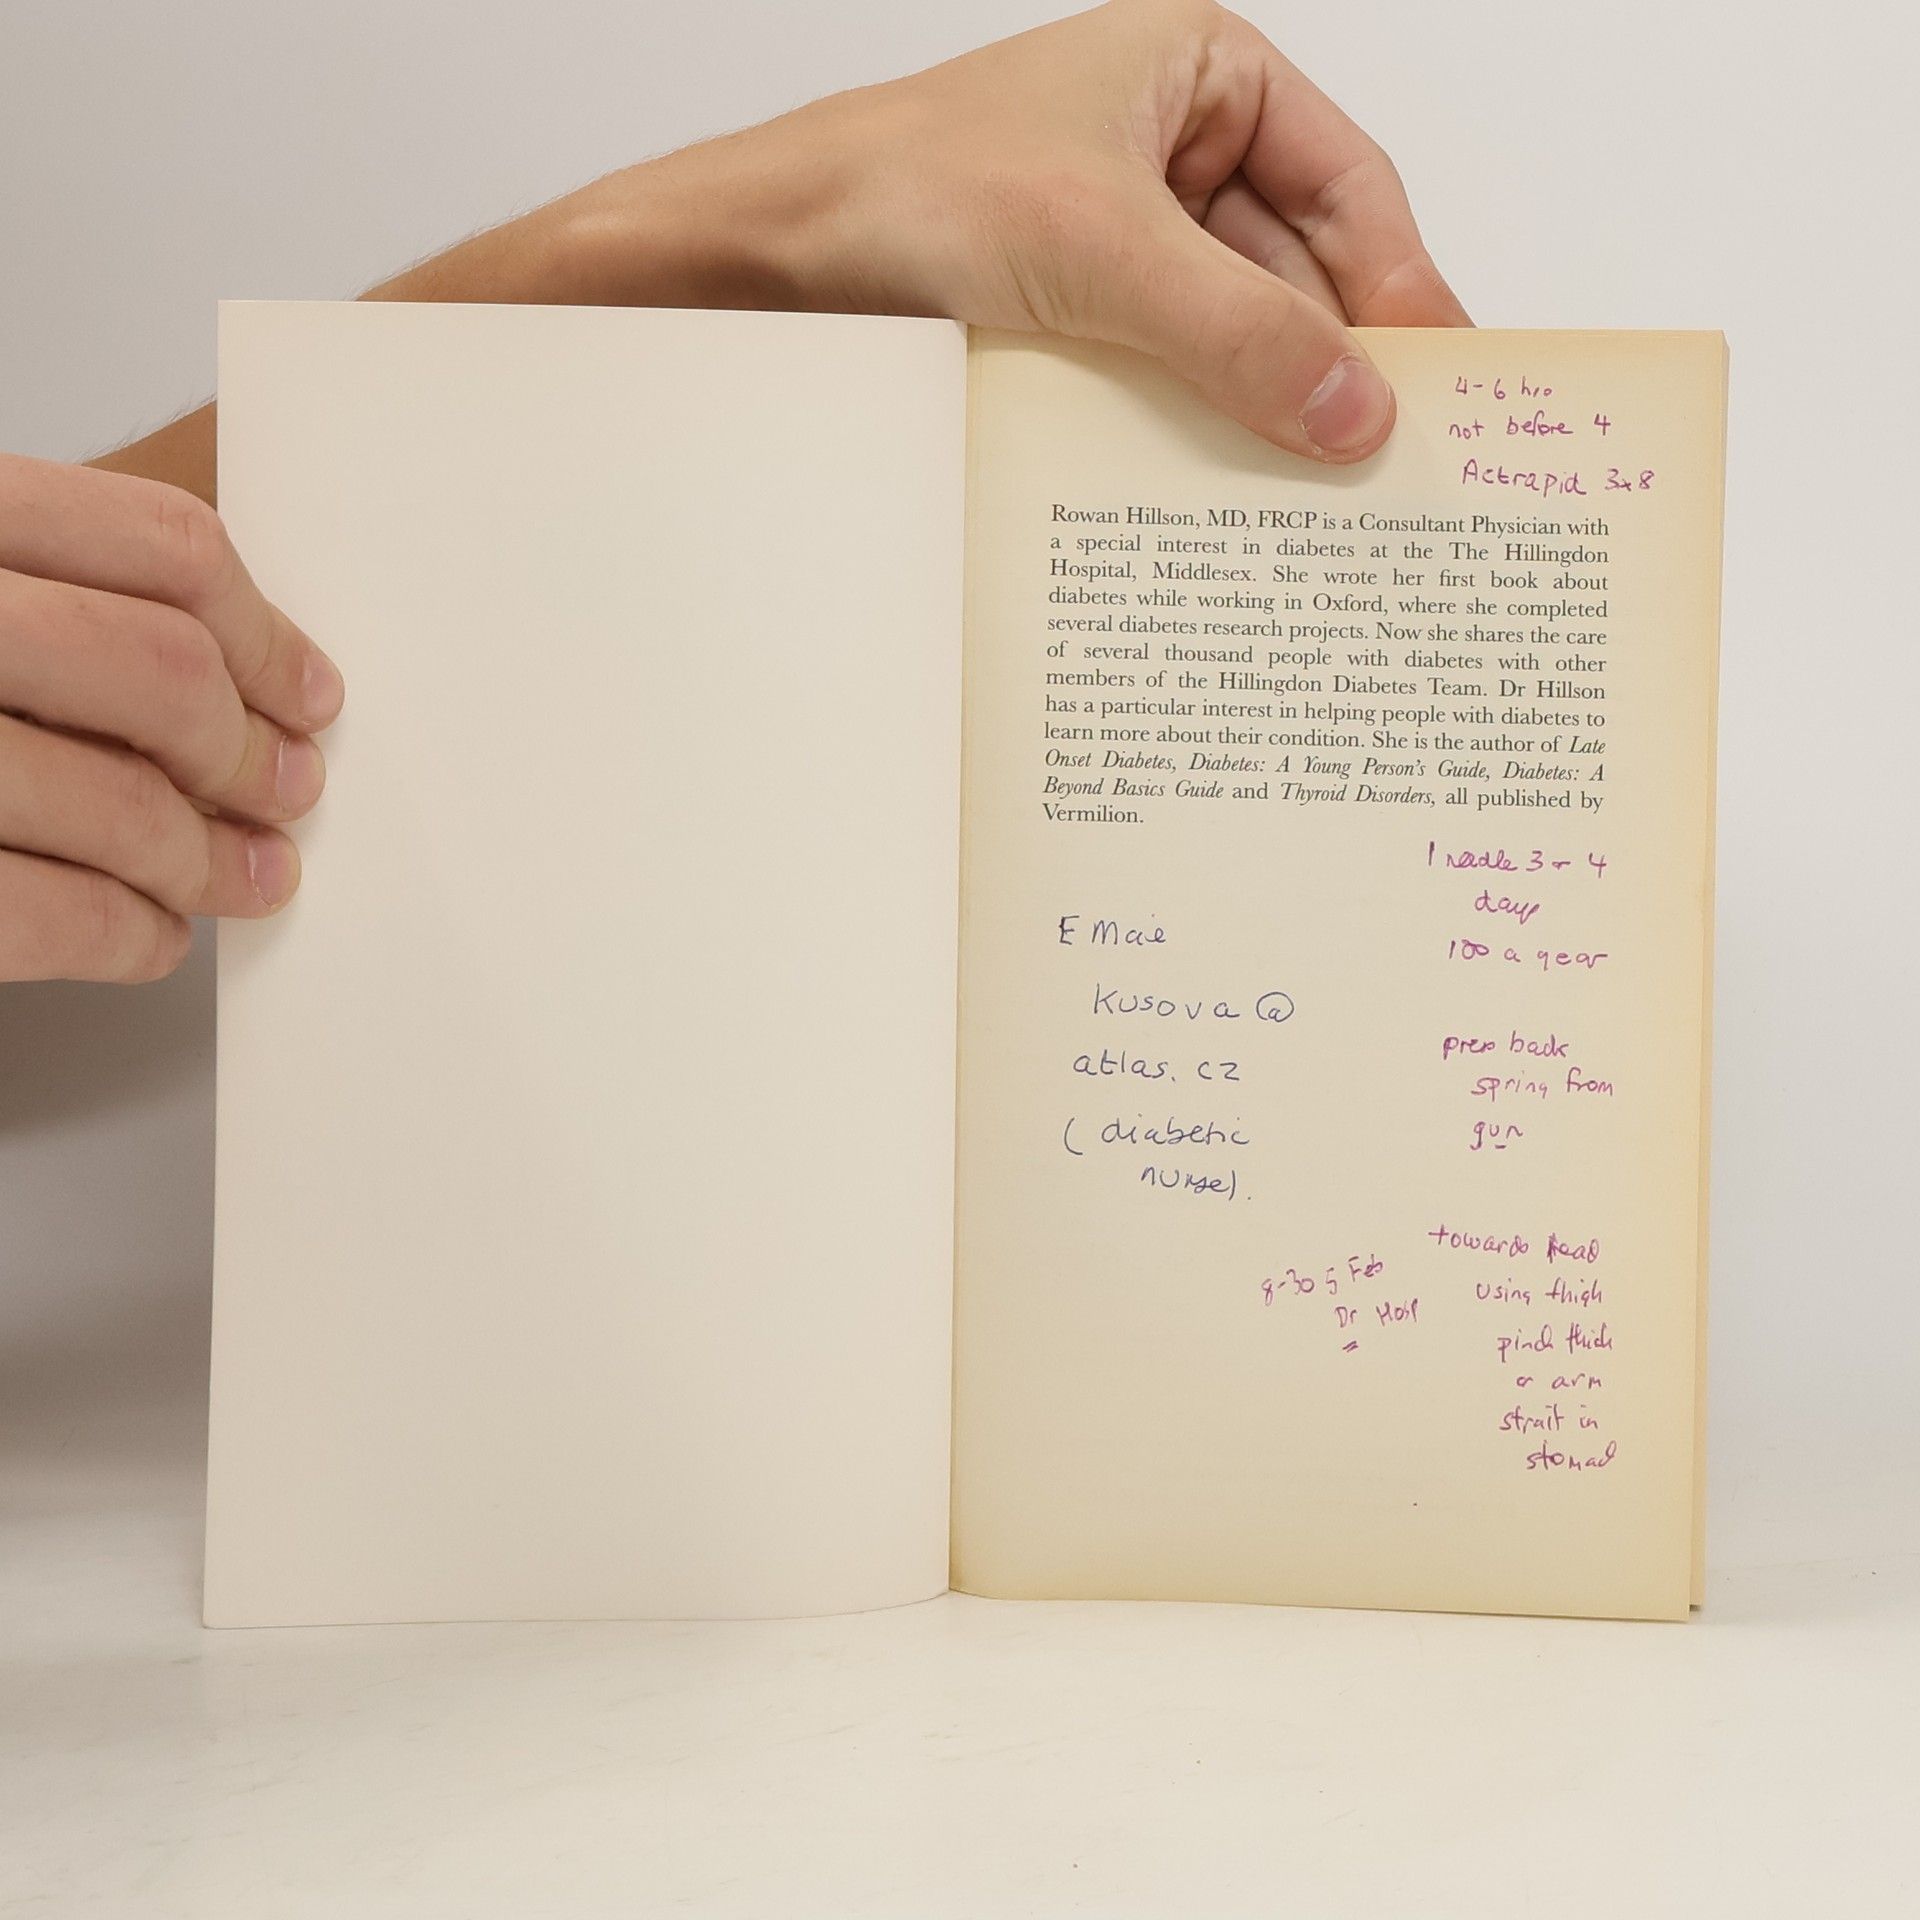 4-6 hrs
not before 4
Actrapid 3x8
Rowan Hillson, MD, FRCP is a Consultant Physician with
a special interest in diabetes at the The Hillingdon
Hospital, Middlesex. She wrote her first book about
diabetes while working in Oxford, where she completed
several diabetes research projects. Now she shares the care
of several thousand people with diabetes with other
members of the Hillingdon Diabetes Team. Dr Hillson
has a particular interest in helping people with diabetes to
learn more about their condition. She is the author of Late
Onset Diabetes, Diabetes: A Young Person's Guide, Diabetes: A
Beyond Basics Guide and Thyroid Disorders, all published by
Vermilion.
1 needle 3 or 4
days
100 a year
E Mail
Kusova @
atlas. cz
( diabetic
nurse).
press back
spring from
gun
8-30 5 Feb
Dr
towards head
using thigh
pinch
or arm
strait in